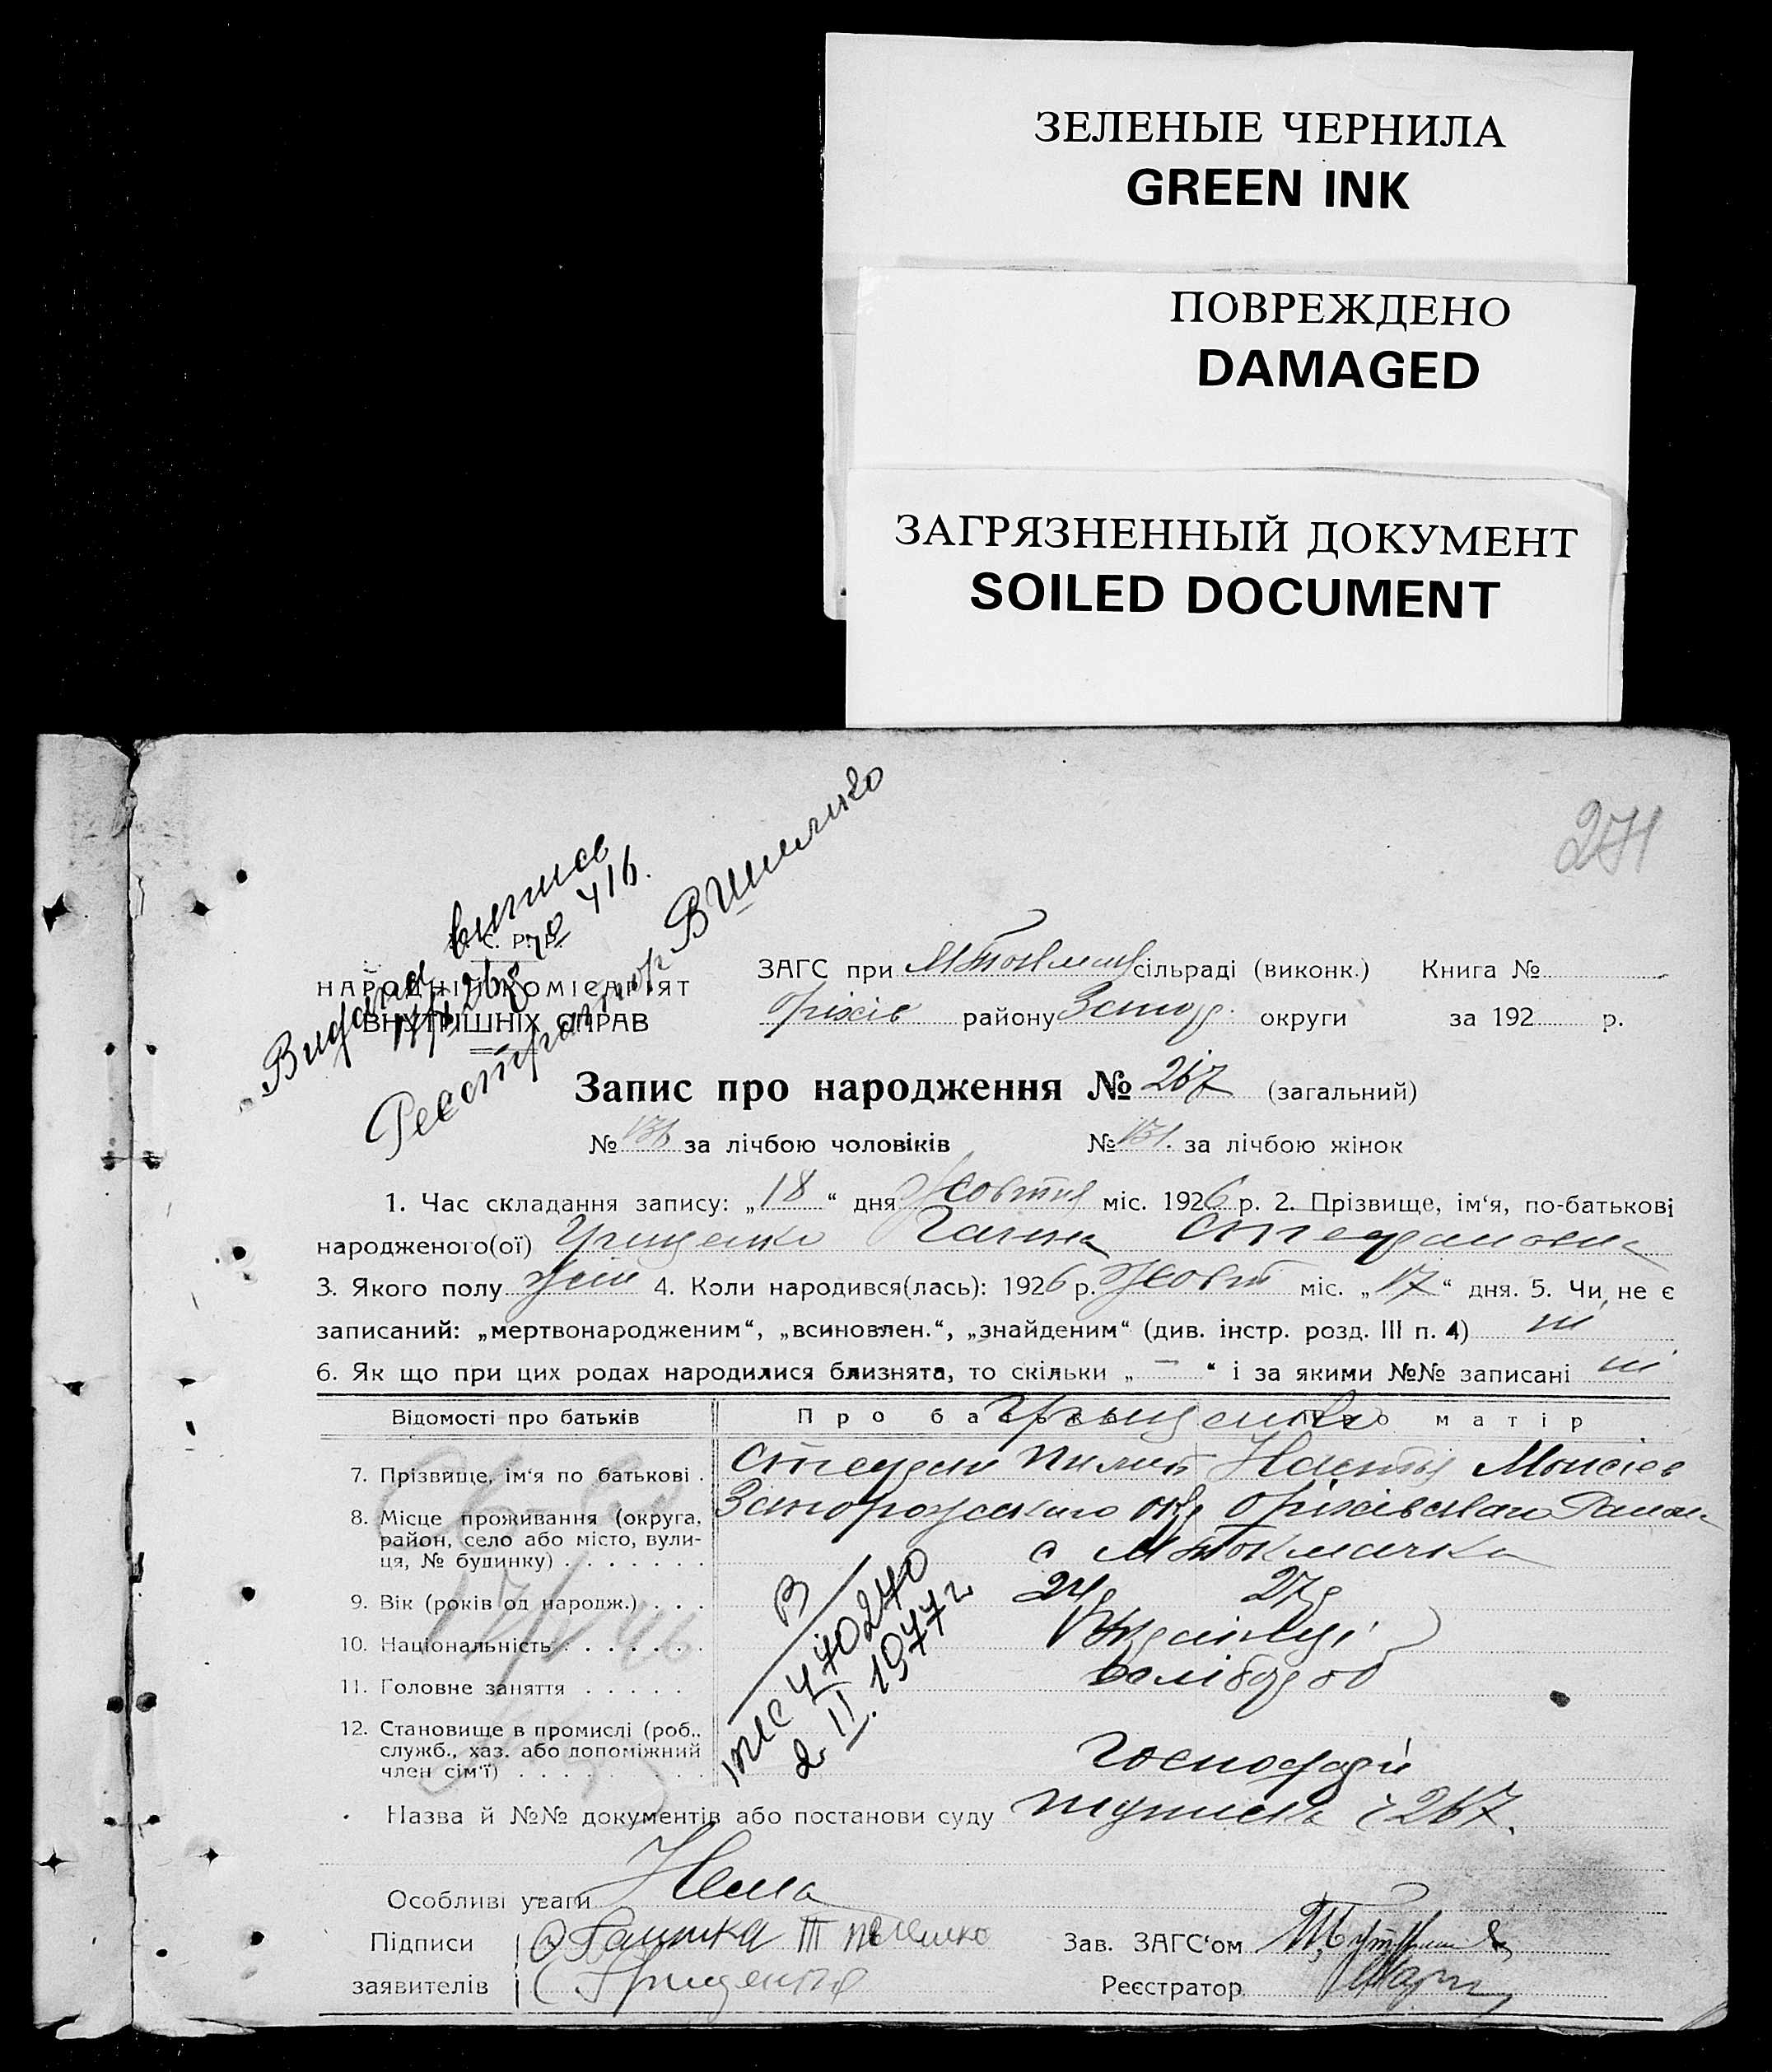 ЗЕЛЕНЫЕ ЧЕРНИЛА
GREEN INK
ПОВРЕЖДЕНО
DAMAGED
ЗАГРЯЗНЕННЫЙ ДОКУМЕНТ
SOILED DOCUMENT
271
Видана випись
416.
Реєстратор ВШишко
С. Р. Р.
НАРОДНІЙ КОМІСАРІЯТ
ВНУТРІШНІХ СПРАВ
ЗАГС при МТокмац сільраді (виконк.) Книга №
Оріхів району Запор. округи за 192 р.
Запис про народження № 267 (загальний)
№ за лічбою чоловіків № 131. за лічбою жінок
1. Час складання запису: „18“ дня Жовтня міс. 1926 р. 2. Прізвище, ім‘я, по-батькові
народженого(ої) Грищенко Ганна Степановна
3. Якого полу жін 4. Коли народився(лась): 1926 р. Жовт міс. „17“ дня. 5. Чи не є
записаний: „мертвонародженим“, „всиновлен.“, „знайденим“ (див. інстр. розд. III п. 4) ні
6. Як що при цих родах народилися близнята, то скільки „ — “ і за якими №№ записані ні
Відомості про батьків Про батька Про матір
Грищенко
7. Прізвище, ім‘я по батькові . Степан Пилип Настя Мойсіев
8. Місце проживання (округа, Запорожского окр Оріхівского Район
район, село або місто, вули-
ця, № будинку) . . . . . . . с МТокмачка
9. Вік (років од народж.) . . . 24 27
10. Національність . . . . . . Українці
11. Головне заняття . . . . . Хлібороб
12. Становище в промислі (роб.,
служб., хаз. або допоміжний
член сім‘ї) . . . . . . . . . Господарі
В
470240
2 II. 1977 г
Назва й №№ документів або постанови суду 267.
Особливі уваги Нема
Підписи
заявителів Грищенко
Зав. ЗАГС‘ом
Реєстратор